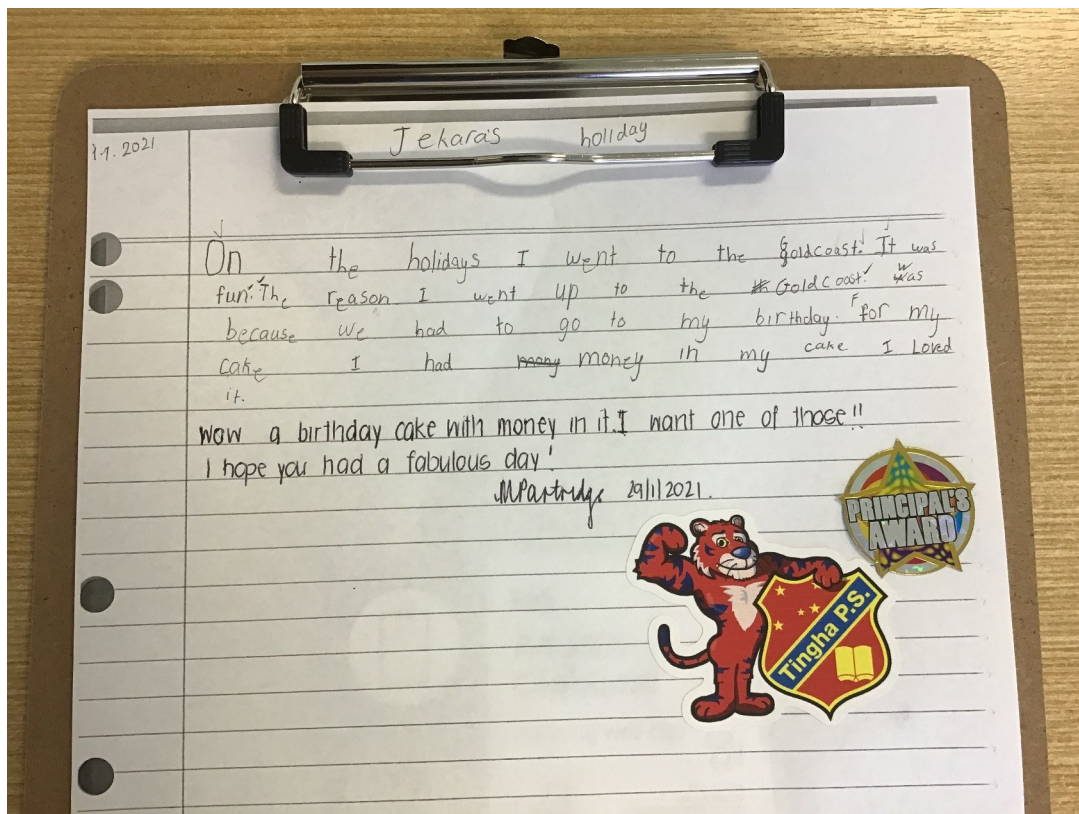 Jekara's holiday
9.1.2021
On the holidays I went to the Goldcoast. It was
fun. The reason I went up to the GoldCoast. Was
because we had to go to my birthday. For my
cake I had money in my cake I Loved
it.
Wow a birthday cake with money in it. I want one of those!!
I hope you had a fabulous day!
MPartridge 29/1/2021.
PRINCIPAL'S
AWARD
Tingha P.S.